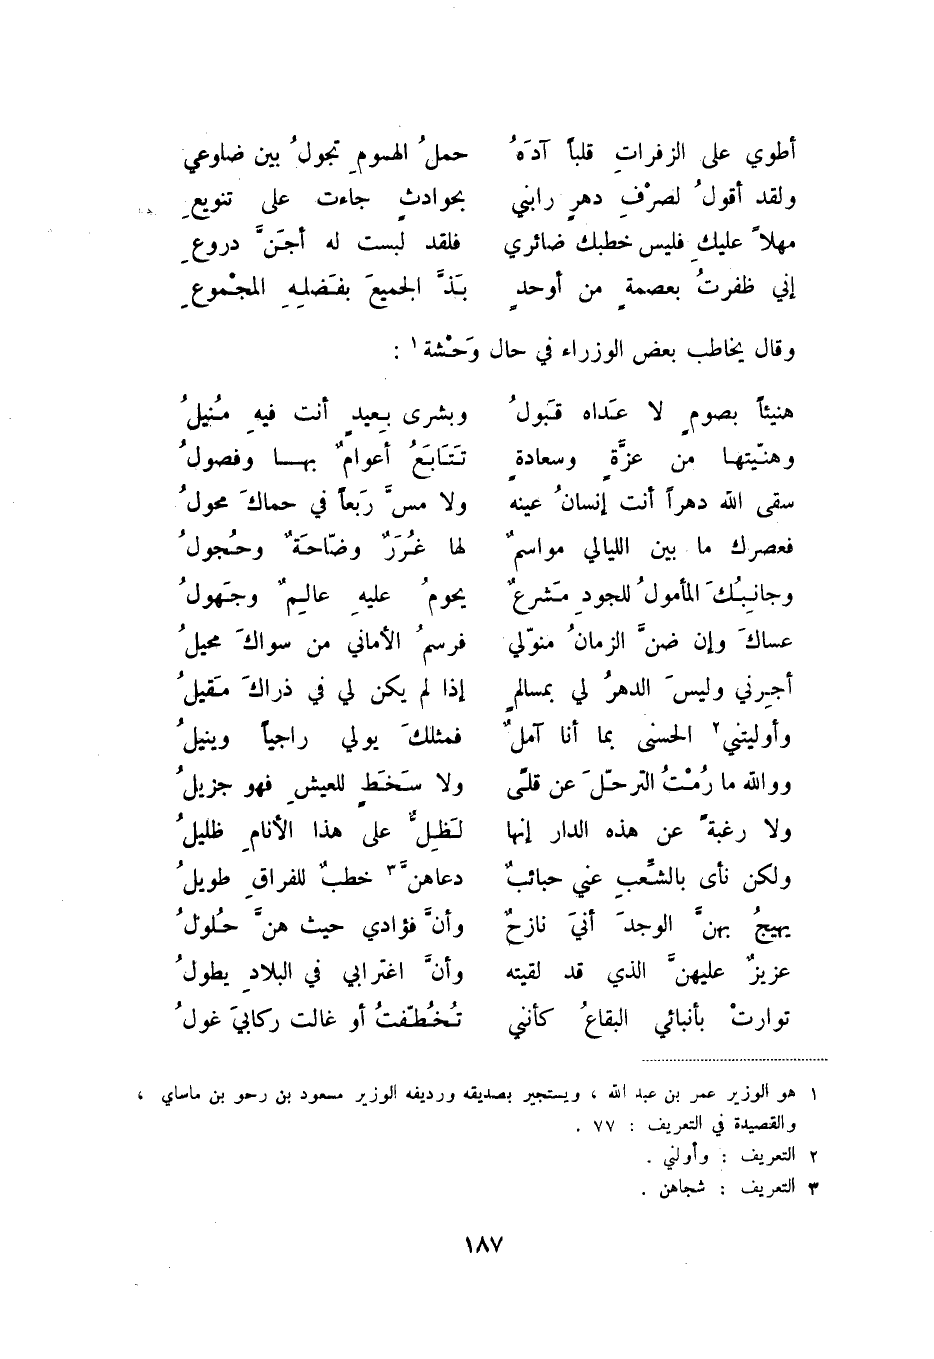 أطوي على الزفراتِ قلباً آدَهُ حملُ الهمومِ تجولُ بين ضلوعي
ولقد أقولُ لصرْفِ دهرٍ رابني بحوادثٍ جاءت على تنويعِ
مهلاً عليكِ فليس خطبك ضائري فلقد لبست له أجَنَّ دروعِ
إني ظفرتُ بعصمةٍ من أوحدٍ بَذَّ الجميعَ بفَضلِهِ المجْموعِ
وقال يخاطب بعض الوزراء في حال وَحْشة ١ :
هنيئاً بصومٍ لا عَداه قَبولُ وبشرى بِعيدٍ أنت فيهِ مُنيلُ
وهنّيتها من عزَّةٍ وسعادةٍ تَتَابَعُ أعوامٌ بها وفصولُ
سقى الله دهراً أنت إنسانُ عينه ولا مسَّ رَبَعاً في حماكَ محولُ
فعصرك ما بين الليالي مواسمٌ لها غُرَرٌ وضّاحَةٌ وحُجولُ
وجانِبُكَ المأمولُ للجودِ مَشرعٌ يحومُ عليهِ عالِمٌ وجَهولُ
عساكَ وإن ضنَّ الزمانُ منوّلي فرسمُ الأماني من سواكَ محيلُ
أجِرني وليسَ الدهرُ لي بمسالمٍ إذا لم يكن لي في ذراكَ مَقيلُ
وأوليتني ٢ الحسنى بما أنا آملٌ فمثلكَ يولي راجياً وينيلُ
ووالله ما رُمْتُ الترحّلَ عن قلًى ولا سَخَطٍ للعيشِ فهو جزيلُ
ولا رغبةً عن هذه الدار إنها لَظِلٌّ على هذا الأنامِ ظليلُ
ولكن نأى بالشِّعبِ عني حبائبٌ دعاهنَّ ٣ خطبٌ للفراقِ طويلُ
يهيجُ بهنَّ الوجدَ أنيَ نازحٌ وأنَّ فؤادي حيث هنَّ حُلولُ
عزيزٌ عليهنَّ الذي قد لقيته وأنَّ اغترابي في البلادِ يطولُ
توارتْ بأنبائي البقاعُ كأنني تُخُطّفتُ أو غالت ركابيَ غولُ
١ هو الوزير عمر بن عبد الله ، ويستجير بصديقه ورديفه الوزير مسعود بن رحو بن ماساي ،
والقصيدة في التعريف : ٧٧ .
٢ التعريف : وأولني .
٣ التعريف : شجاهن .
١٨٧